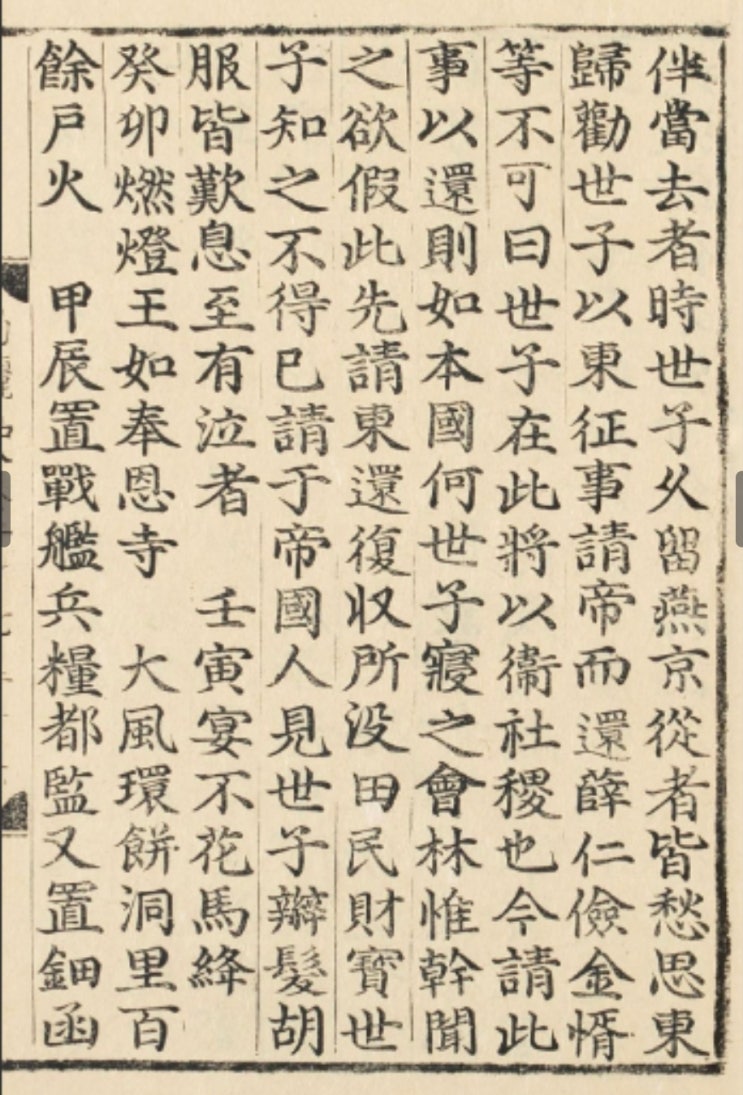 伴當去者時世子久留燕京從者皆愁思東
歸勸世子以東征事請帝而還薛仁儉金㥠
等不可曰世子在此將以衞社稷也今請此
事以還則如本國何世子寢之會林惟幹聞
之欲假此先請東還復収所没田民財寶世
子知之不得已請于帝國人見世子辮髮胡
服皆歎息至有泣者　壬寅宴不花馬絳
癸卯燃燈王如奉恩寺　大風環餅洞里百
餘戶火　甲辰置戰艦兵糧都監又置鈿函